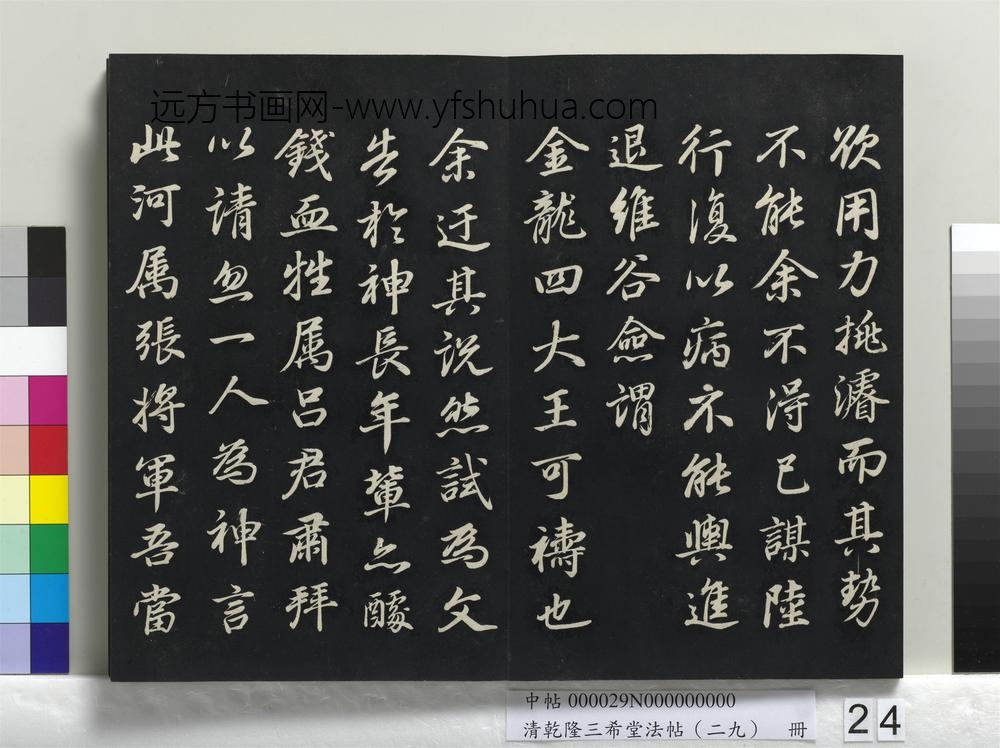 远方书画网-www.yfshuhua.com
欲用力挑濬而其势
不能余不得已謀陸
行復以病不能輿進
退維谷僉謂
金龍四大王可禱也
余迂其説然試為文
告於神長年輩亦醵
錢血牲属吕君肅拜
以請忽一人為神言
此河属張將軍吾當
中帖 000029N000000000
清乾隆三希堂法帖（二九） 冊
24